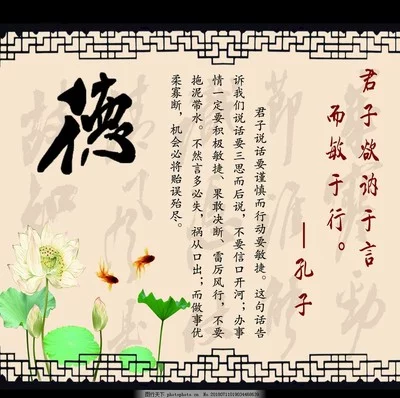 君子欲讷于言
而敏于行。
—孔子
君子说话要谨慎而行动要敏捷。这句话告
诉我们说话要三思而后说，不要信口开河；办事
情一定要积极敏捷、果敢决断、雷厉风行，不要
拖泥带水。不然言多必失，祸从口出；而做事优
柔寡断，机会必将贻误殆尽。
德